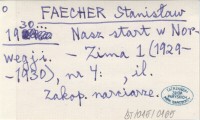 0
FAECHER Stanisław
1930... Nasz start w Nor-
wegji. — Zima 1 (1929-
-1930), nr 4: , il.
zakop. narciarze.